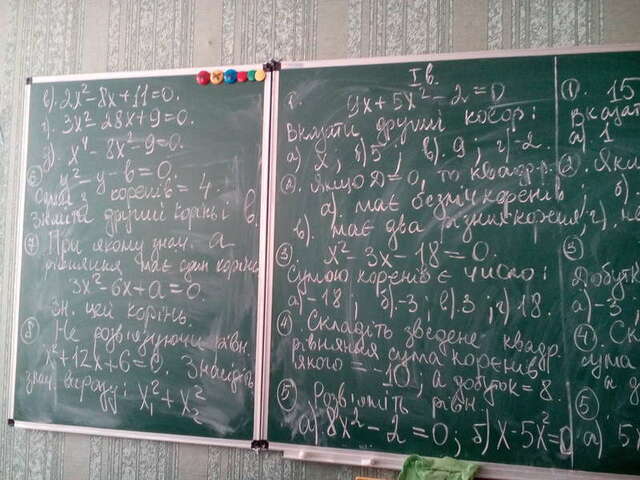 в). 2x² - 8x + 11 = 0.
г). 3x² 28x + 9 = 0.
д). x⁴ - 8x² - 9 = 0.
6 y² y - b = 0.
Сума коренів = 4.
Знайти другий корінь і в.
7 При якому знач. a
рівняння має один корінь
3x² - 6x + a = 0.
Зн. цей корінь.
8 Не розв'язуючи рівн.
x² + 12x + 6 = 0. Знайдіть
знач. виразу: x₁² + x₂²
I в.
1. 9x + 5x² - 2 = 0
Вкажіть другий коеф:
а) x; б) 5; в). 9; г). -2.
2. Якщо D = 0, то квадр.
а). має безліч коренів;
в). має два різних корені; г).
3. x² - 3x - 18 = 0.
Сумою коренів є число:
а) -18; б). -3; в). 3; г). 18.
4. Складіть зведене квадр.
рівняння сума коренів
якого = -10, а добуток = 8.
5 Розв'яжіть рівн.
а) 8x² - 2 = 0; б) x - 5x² = 0
1. 15
Вказат
а) 1
2. Якщ
б)
3
Добут
а) -3
4. Ск
сума
а д
5
а) 5x